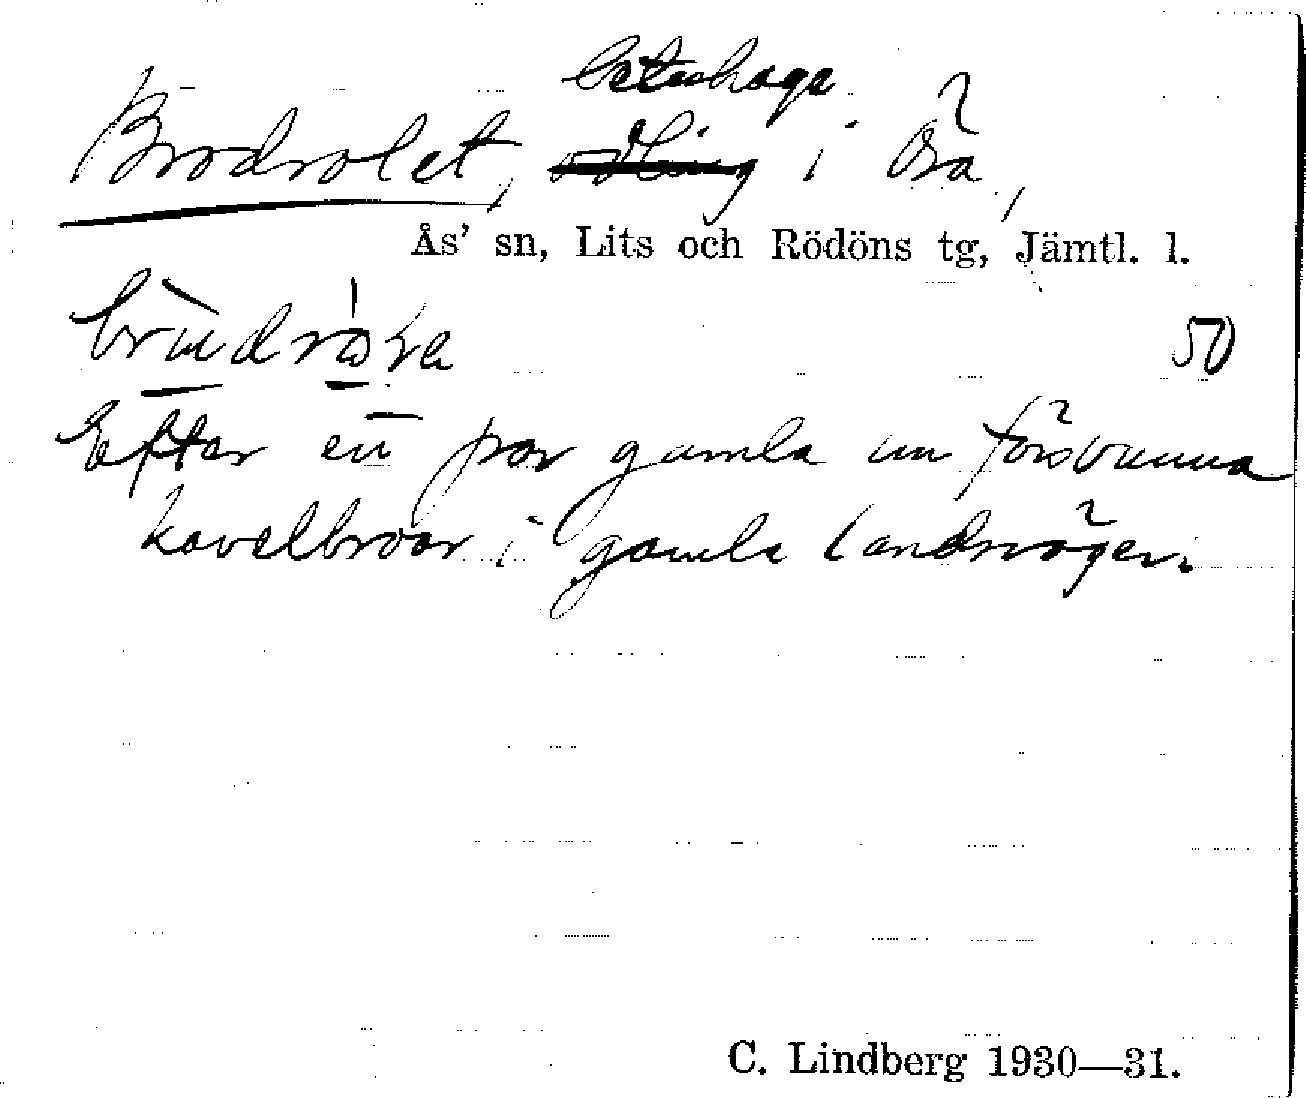 betashage
Brodrolet, odling i Ösa,
Ås' sn, Lits och Rödöns tg, Jämtl. l.
50
Efter en par gamla nu försvunna
kavelbroar i gamla landsvägen.
C. Lindberg 1930—31.